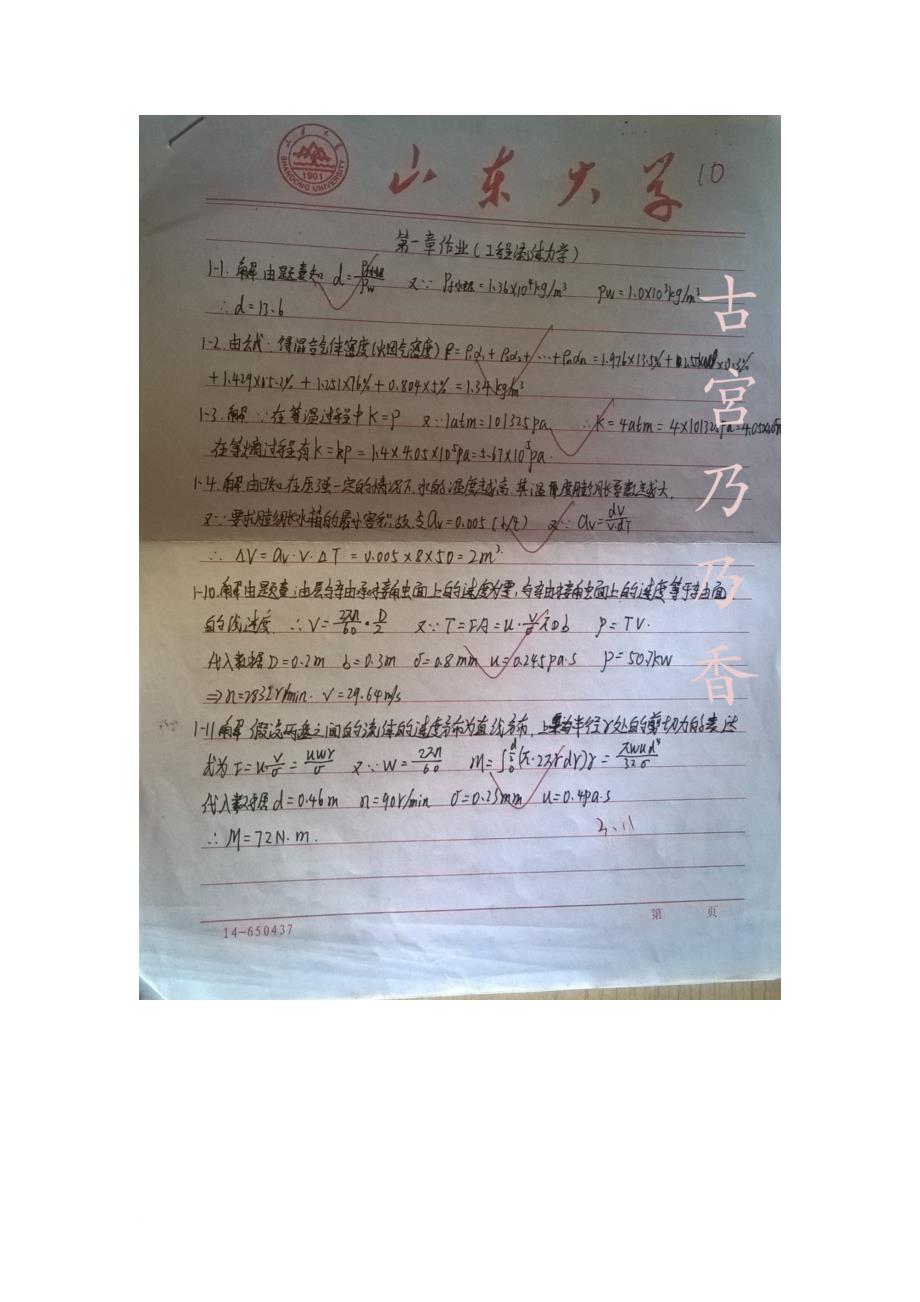 山东大学
SHANDONG UNIVERSITY
1901
山东大学
10
第一章作业(工程流体力学)
1-1. 解: 由题意知 d=ρ水银/ρw 又∵ ρ水银=1.36×10⁴kg/m³ ρw=1.0×10³kg/m³
∴ d=13.6
1-2. 由公式: 得混合气体密度(烟气密度) ρ=ρ₁α₁+ρ₂α₂+…+ρnαn=1.976×13.5%+ ×0.3%
+1.429×5.2%+1.251×76%+0.804×5%=1.34kg/m³
1-3. 解: ∵在等温过程中K=P 又∵1atm=101325pa ∴K=4atm=4×101325pa=4.05×10⁵pa
在等熵过程有K=kp=1.4×4.05×10⁵pa=5.67×10⁵pa.
1-4. 解 由 知在压强一定的情况下,水的温度越高,其温度膨胀系数越大,
又∵要求膨胀水箱的最小容积,故 αv=0.005(1/℃) 又∵αv=dV/V·dT
∴ ΔV=αv·V·ΔT=0.005×8×50=2m³.
1-10. 解 由题意: 由层与轴承接触面上的速度为零,与轴接触面上的速度等于轴面
的线速度. ∴V=2πn/60·D/2 又∵T=FA=u·V/σ πDb P=TV.
代入数据D=0.2m b=0.3m σ=0.8mm u=0.245pa·s P=50.7kw
⇒n=2832r/min. V=29.64m/s
1-11 解 假设两盘之间的流体的速度分布为直线分布,上盘半径r处的剪切力的表达
式为τ=u·V/σ=uwr/σ 又∵W=2πn/60 M=∫₀^(d/2)(τ·2πrdr)r=πwud⁴/32σ
代入数据d=0.46m n=90r/min σ=0.23mm u=0.4pa·s
∴M=72N·m.
3.11
第 页
14-650437
古宫乃乃香